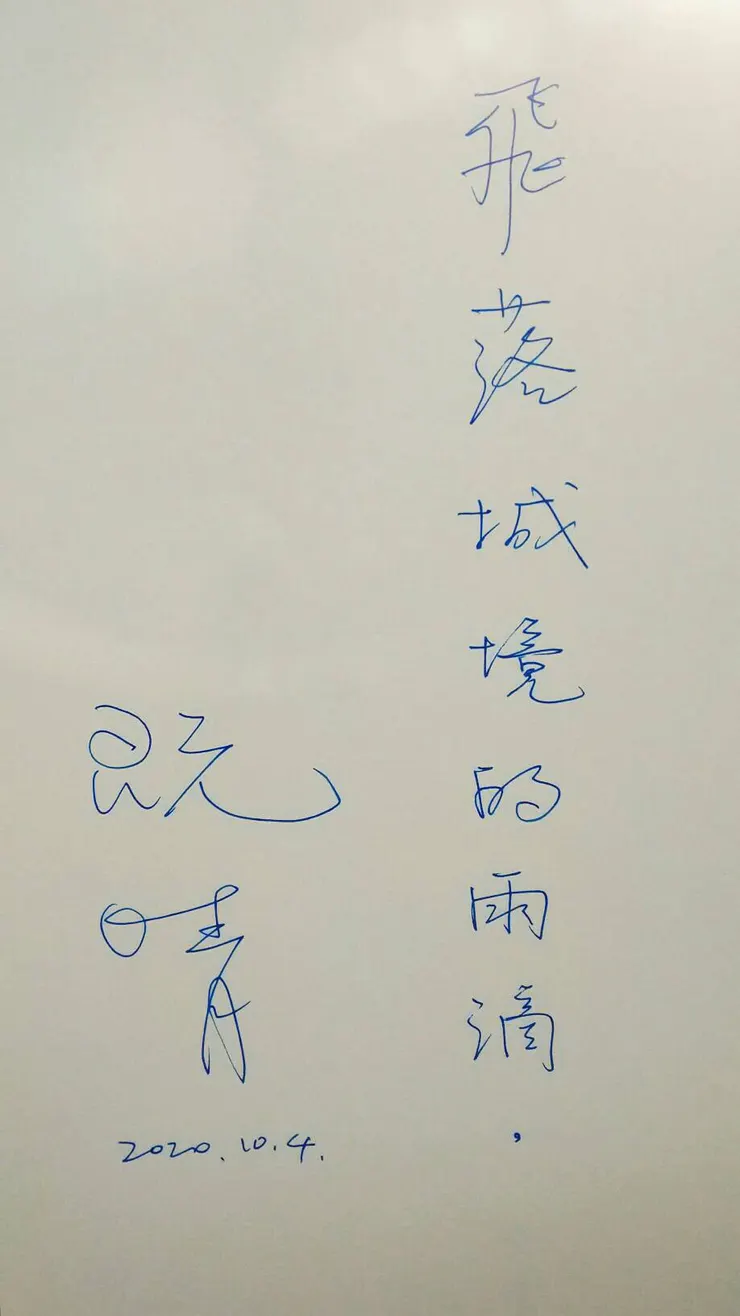 飛落城境的雨滴，
既晴
2020.10.4.